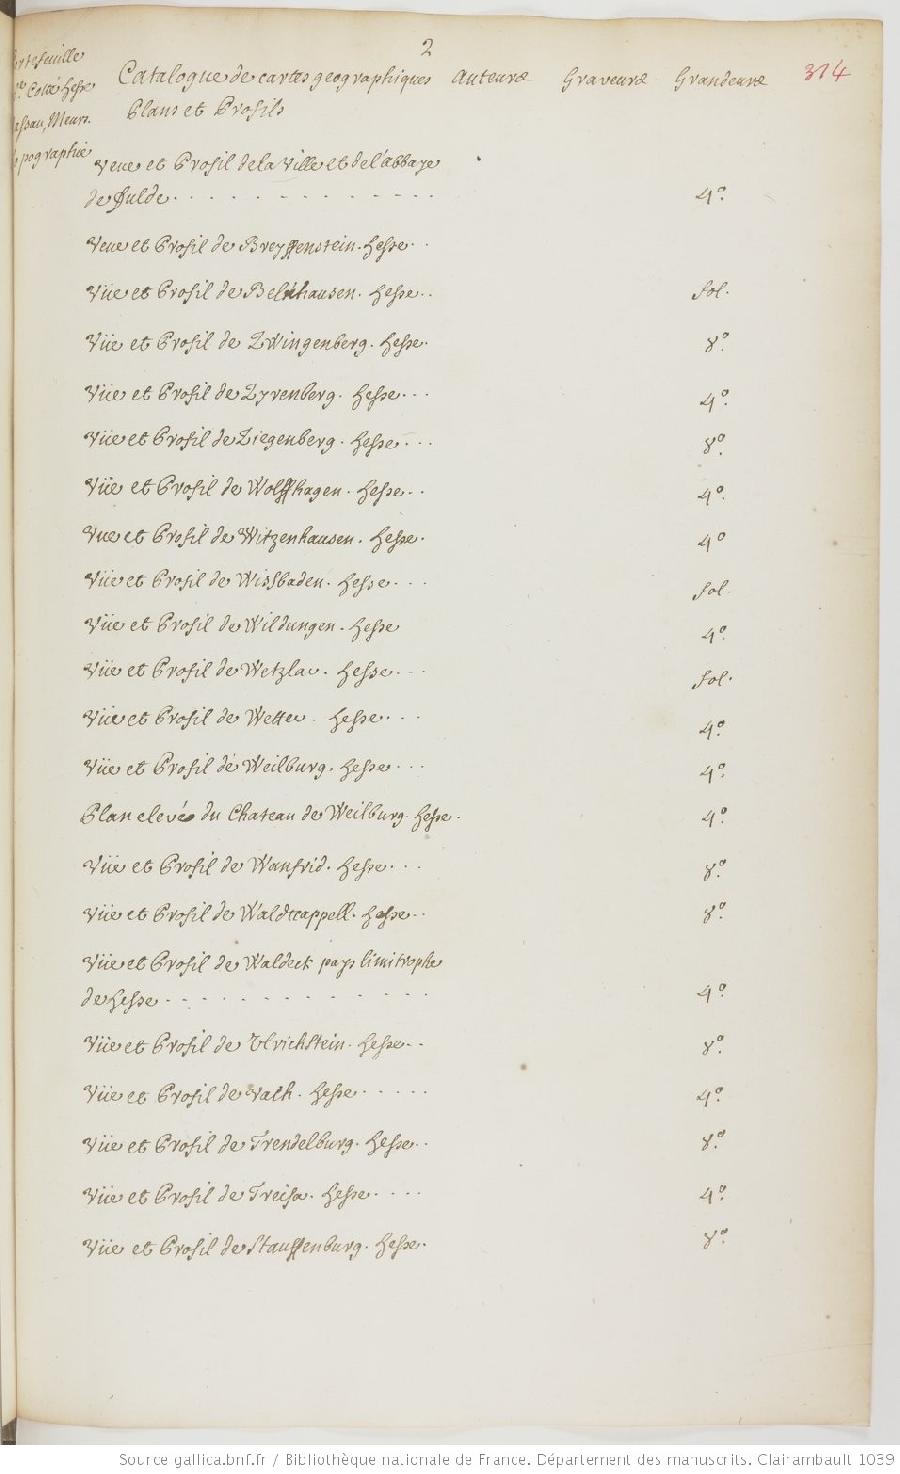 2
Catalogue de cartes geographiques Auteurs Graveurs Grandeurs 314
Plans et Profils
Cotté Hesse
Veue et Profil de la Ville et de l'abbaye
de Fulde . . . . . . . . . . 4.º
Veue et Profil de Breyffenstein. Hesse. .
Vüe et Profil de Belnhausen. Hesse . . fol.
Vüe et Profil de Zwingenberg. Hesse. 8.º
Vüe et Profil de Zyrenberg. Hesse. . . 4.º
Vüe et Profil de Ziegenberg. Hesse. . . 8.º
Vüe et Profil de Wolffhagen. Hesse. . 4.º
Vue et Profil de Witzenhausen. Hesse. 4º
Vüe et Profil de Wisbaden. Hesse. . . fol.
Vüe et Profil de Wildungen. Hesse 4.º
Vüe et Profil de Wetzlar. Hesse. . . fol.
Vüe et Profil de Wetter. Hesse. . . 4.º
Vüe et Profil de Weilburg. Hesse. . . 4.º
Plan elevé du Chateau de Weilburg. Hesse. 4.º
Vüe et Profil de Wanfrid. Hesse. . . 8.º
Vüe et Profil de Waldtcappell. Hesse. . 8.º
Vüe et Profil de Waldeck pays limitrophe
de Hesse . . . . . . . . . . 4.º
Vüe et Profil de Vlrichstein. Hesse. . 8.º
Vüe et Profil de Valh. Hesse. . . . . 4.º
Vüe et Profil de Trendelburg. Hesse. . 8.º
Vüe et Profil de Treisa. Hesse. . . . 4.º
Vüe et Profil de Stauffenburg. Hesse. 8.º
Source gallica.bnf.fr / Bibliothèque nationale de France. Département des manuscrits. Clairambault 1039